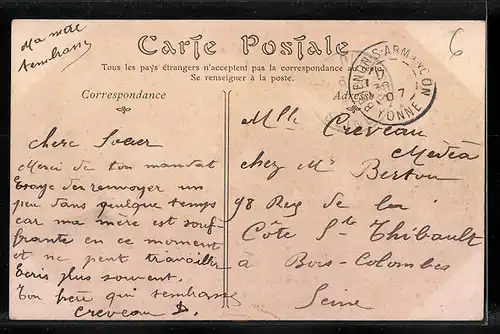 Ma mère
t'embrasse
6
Carte Postale
Tous les pays étrangers n'acceptent pas la correspondance au
Se renseigner à la poste.
Correspondance
Adresse
BRIENON-S-ARMANÇON
07
YONNE
Chere Soeur
Merci de ton mandat
Essaye d'en renvoyer un
peu dans quelque temps
car ma mère est souf
frante en ce moment
et ne peut travailler
Ecris plus souvent.
Ton frère qui t'embrasse
Creveau D.
Mlle Creveau
Médéa
chez Mr Berton
98 Rue de la
Côte St Thibault
à Bois-Colombes
Seine